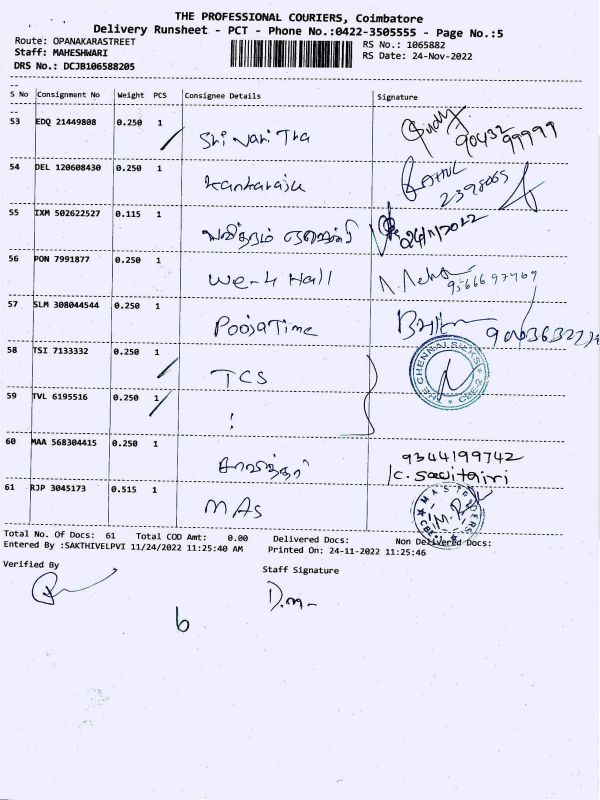 THE PROFESSIONAL COURIERS, Coimbatore
Delivery Runsheet - PCT - Phone No.:0422-3505555 - Page No.:5
Route: OPANAKARASTREET RS No.: 1065882
Staff: MAHESHWARI RS Date: 24-Nov-2022
DRS No.: DCJB106588205
S No Consignment No Weight PCS Consignee Details Signature
53 EDQ 21449808 0.250 1 Shi Nari Tha 90432 99999
54 DEL 120608430 0.250 1 kankaraju RAHUL
55 IXM 502622527 0.115 1 24/11/2022
56 PON 7991877 0.250 1 We-4 Hall 9566697769
57 SLM 308044544 0.250 1 PoojaTime
58 TSI 7133332 0.250 1 TCS THE CHENNAI SILKS CBE
59 TVL 6195516 0.250 1 !
60 MAA 568304415 0.250 1 சாவித்திரி 9344199742
K. Savitairi
61 RJP 3045173 0.515 1 MAS MAS TRADERS CBE-1
Total No. Of Docs: 61 Total COD Amt: 0.00 Delivered Docs: Non Delivered Docs:
Entered By :SAKTHIVELPVI 11/24/2022 11:25:40 AM Printed On: 24-11-2022 11:25:46
Verified By Staff Signature
D.m-
6